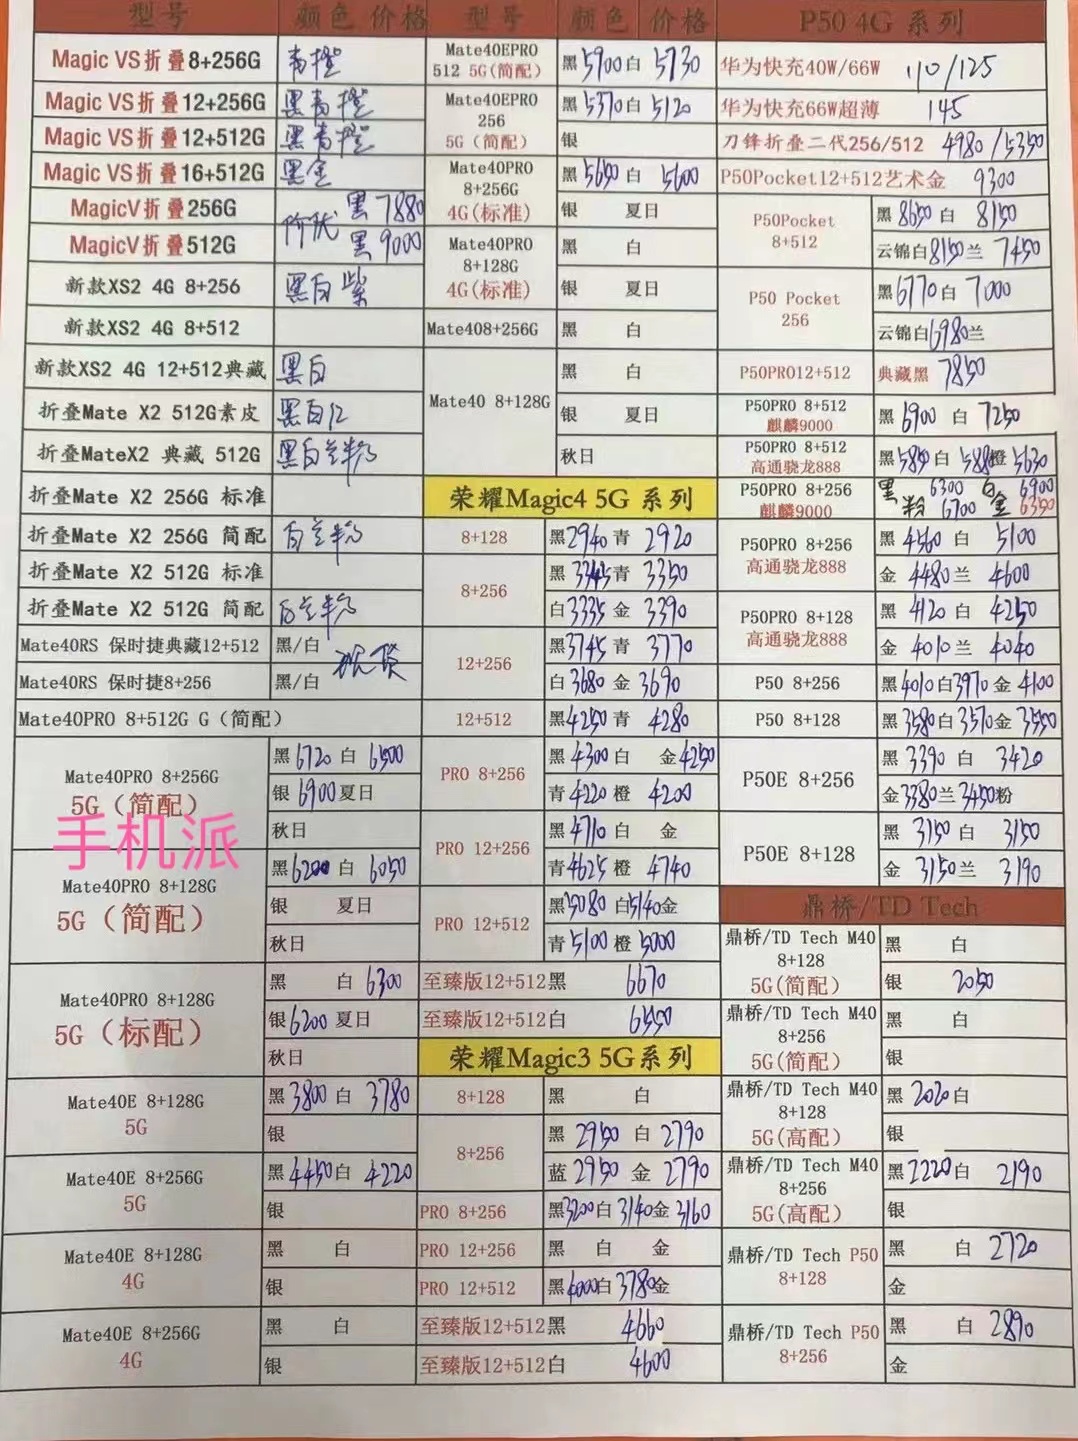 型号 颜色 价格 型号 颜色 价格 P50 4G 系列
Magic VS折叠8+256G 青橙
Magic VS折叠12+256G 黑青橙
Magic VS折叠12+512G 黑青橙
Magic VS折叠16+512G 黑金
MagicV折叠256G 黑 7880
MagicV折叠512G 黑 9000
新款XS2 4G 8+256 黑白紫
新款XS2 4G 8+512
新款XS2 4G 12+512典藏 黑白
折叠Mate X2 512G素皮 黑白红
折叠MateX2 典藏 512G 黑白兰粉
折叠Mate X2 256G 标准
折叠Mate X2 256G 简配 白兰粉
折叠Mate X2 512G 标准
折叠Mate X2 512G 简配 白兰粉
Mate40RS 保时捷典藏12+512 黑/白
现货
Mate40RS 保时捷8+256 黑/白
Mate40PRO 8+512G G（简配）
Mate40PRO 8+256G
5G（简配）
黑 6720 白 6500
银 6900 夏日
秋日
手机派
Mate40PRO 8+128G
5G（简配）
黑 6200 白 6050
银 夏日
秋日
Mate40PRO 8+128G
5G（标配）
黑 白 6300
银 6200 夏日
秋日
Mate40E 8+128G
5G
黑 3800 白 3780
银
Mate40E 8+256G
5G
黑 4450 白 4220
银
Mate40E 8+128G
4G
黑 白
银
Mate40E 8+256G
4G
黑 白
银
Mate40EPRO
512 5G(简配)
黑 5900 白 5730
Mate40EPRO
256
5G（简配）
黑 5370 白 5120
银
Mate40PRO
8+256G
4G(标准)
黑 5650 白 5600
银 夏日
Mate40PRO
8+128G
4G(标准)
黑 白
银 夏日
Mate408+256G 黑 白
Mate40 8+128G
黑 白
银 夏日
秋日
荣耀Magic4 5G 系列
8+128 黑 2940 青 2920
8+256
黑 3345 青 3350
白 3335 金 3390
12+256
黑 3745 青 3770
白 3680 金 3690
12+512 黑 4250 青 4280
PRO 8+256
黑 4300 白 金 4250
青 4220 橙 4200
PRO 12+256
黑 4710 白 金
青 4625 橙 4740
PRO 12+512
黑 5080 白 5140 金
青 5100 橙 5000
至臻版12+512黑 6670
至臻版12+512白 6550
荣耀Magic3 5G系列
8+128 黑 白
8+256
黑 2950 白 2790
蓝 2950 金 2790
PRO 8+256 黑 3200 白 3140 金 3160
PRO 12+256 黑 白 金
PRO 12+512 黑 4000 白 3780 金
至臻版12+512黑 4660
至臻版12+512白 4600
华为快充40W/66W 110/125
华为快充66W超薄 145
刀锋折叠二代256/512 4980/5350
P50Pocket12+512艺术金 9300
P50Pocket
8+512
黑 8650 白 8150
云锦白 8150 兰 7450
P50 Pocket
256
黑 6770 白 7000
云锦白 6980 兰
P50PRO12+512 典藏黑 7850
P50PRO 8+512
麒麟9000
黑 6900 白 7250
P50PRO 8+512
高通骁龙888
黑 5850 白 橙 5630
P50PRO 8+256
麒麟9000
黑 6300 白 6900
粉 6700 金 6350
P50PRO 8+256
高通骁龙888
黑 4560 白 5100
金 4480 兰 4600
P50PRO 8+128
高通骁龙888
黑 4120 白 4250
金 4010 兰 4040
P50 8+256 黑 4010 白 3970 金 4100
P50 8+128 黑 3580 白 3570 金 3550
P50E 8+256
黑 3390 白 3420
金 3380 兰 3450 粉
P50E 8+128
黑 3150 白 3150
金 3150 兰 3190
鼎桥/TD Tech
鼎桥/TD Tech M40
8+128
5G(简配)
黑 白
银 2050
鼎桥/TD Tech M40
8+256
5G(简配)
黑 白
银
鼎桥/TD Tech M40
8+128
5G(高配)
黑 2020 白
银
鼎桥/TD Tech M40
8+256
5G(高配)
黑 2220 白 2190
银
鼎桥/TD Tech P50
8+128
黑 白 2720
金
鼎桥/TD Tech P50
8+256
黑 白 2890
金